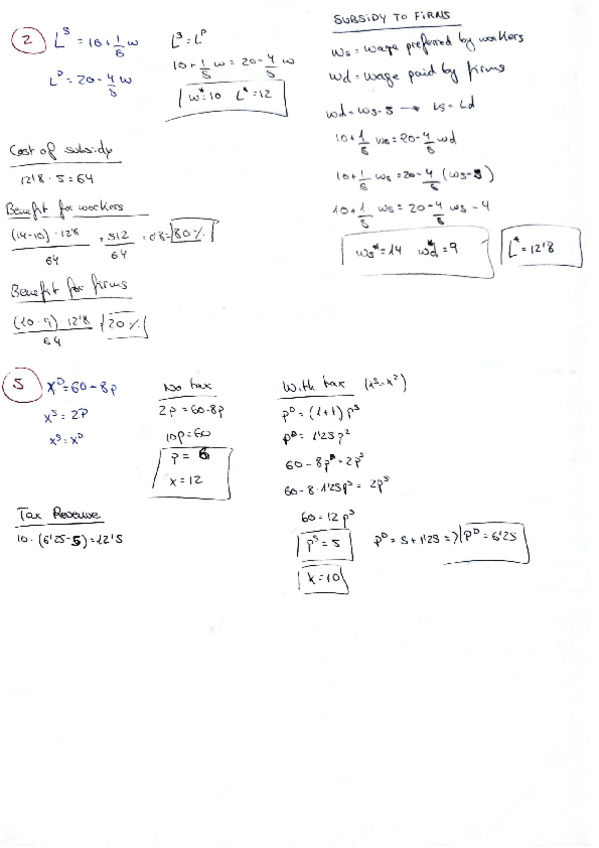 2
L^S = 10 + 1/5 w
L^D = 20 - 4/5 w
L^S = L^D
10 + 1/5 w = 20 - 4/5 w
w* = 10 L* = 12
SUBSIDY TO FIRMS
ws = wage preferred by workers
wd = wage paid by firms
wd = ws - 5 → Ls = Ld
10 + 1/5 ws = 20 - 4/5 wd
10 + 1/5 ws = 20 - 4/5 (ws - 5)
10 + 1/5 ws = 20 - 4/5 ws - 4
ws* = 14 wd* = 9 L* = 12'8
Cost of subsidy
12'8 · 5 = 64
Benefit for workers
(14-10) · 12'8 / 64 = 51'2 / 64 = 0'8 = 80%
Benefit for firms
(10-9) · 12'8 / 64 = 20%
5
x^D = 60 - 8p
x^S = 2P
x^S = x^D
No tax
2p = 60 - 8p
10p = 60
p = 6
x = 12
With tax (x^S = x^D)
p^D = (1+t) p^S
p^D = 1'25 p^2
60 - 8p^D = 2p^S
60 - 8 · 1'25p^S = 2p^S
60 = 12 p^S
p^S = 5 p^D = 5 + 1'25 => p^D = 6'25
x = 10
Tax Revenue
10 · (6'25 - 5) = 12'5